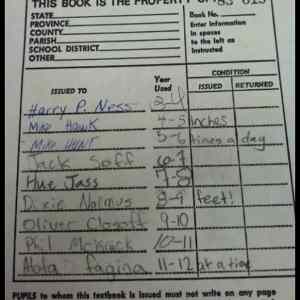 THIS BOOK IS THE PROPERTY OF:
STATE
PROVINCE
COUNTY
PARISH
SCHOOL DISTRICT
OTHER
Book No.
Enter information
in spaces
to the left as
instructed
CONDITION
ISSUED TO
Year
Used
ISSUED
RETURNED
Harry P. Ness 2-4
Mike Hawk 4-5 inches
Mike HUNT 5-6 times a day
Jack Soff 6-7
Hue Jass 7-8
Dixie Normus 8-9 feet!
Oliver Closoff 9-10
Phil McKrack 10-11
Alota Fagina 11-12 at a time
PUPILS to whom this textbook is issued must not write on any page